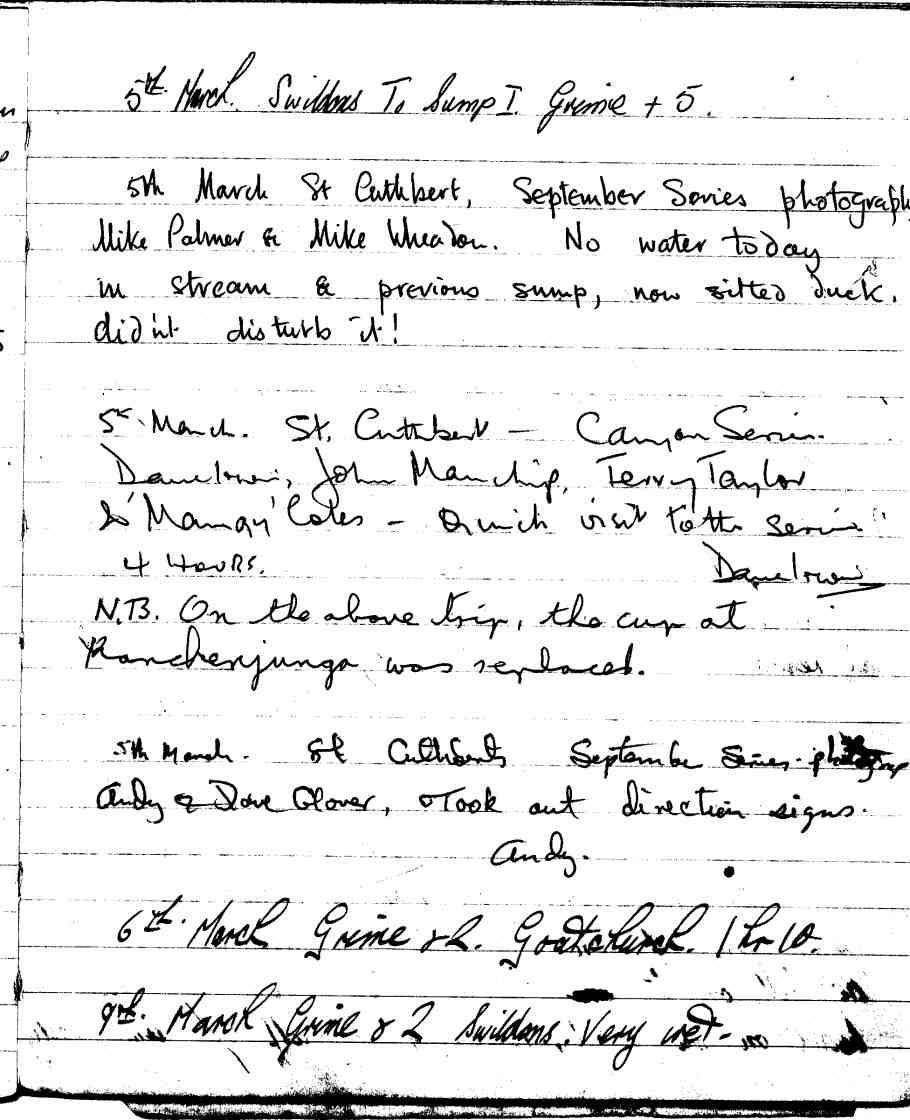 5th March. Swildons To Sump I. Grime + 5.
5th March St Cuthbert, September Series photograph
Mike Palmer & Mike Wheadon. No water today
in stream & previous sump, now silted duck.
did'nt disturb it!
5th March. St. Cuthbert – Canyon Series.
Dave Irwin, John Manchip, Terry Taylor
& 'Mangy' Coles – Quick visit to the series
4 HOURS.
Dave Irwin
N.B. On the above trip, the cup at
Kanchenjunga was replaced.
5th March. St Cuthberts September Series.
Andy & Dave Glover, Took out direction signs.
Andy.
6th. March Grime & 2. Goatchurch. 1 hr 10.
9th. March Grime & 2 Swildons. Very wet.